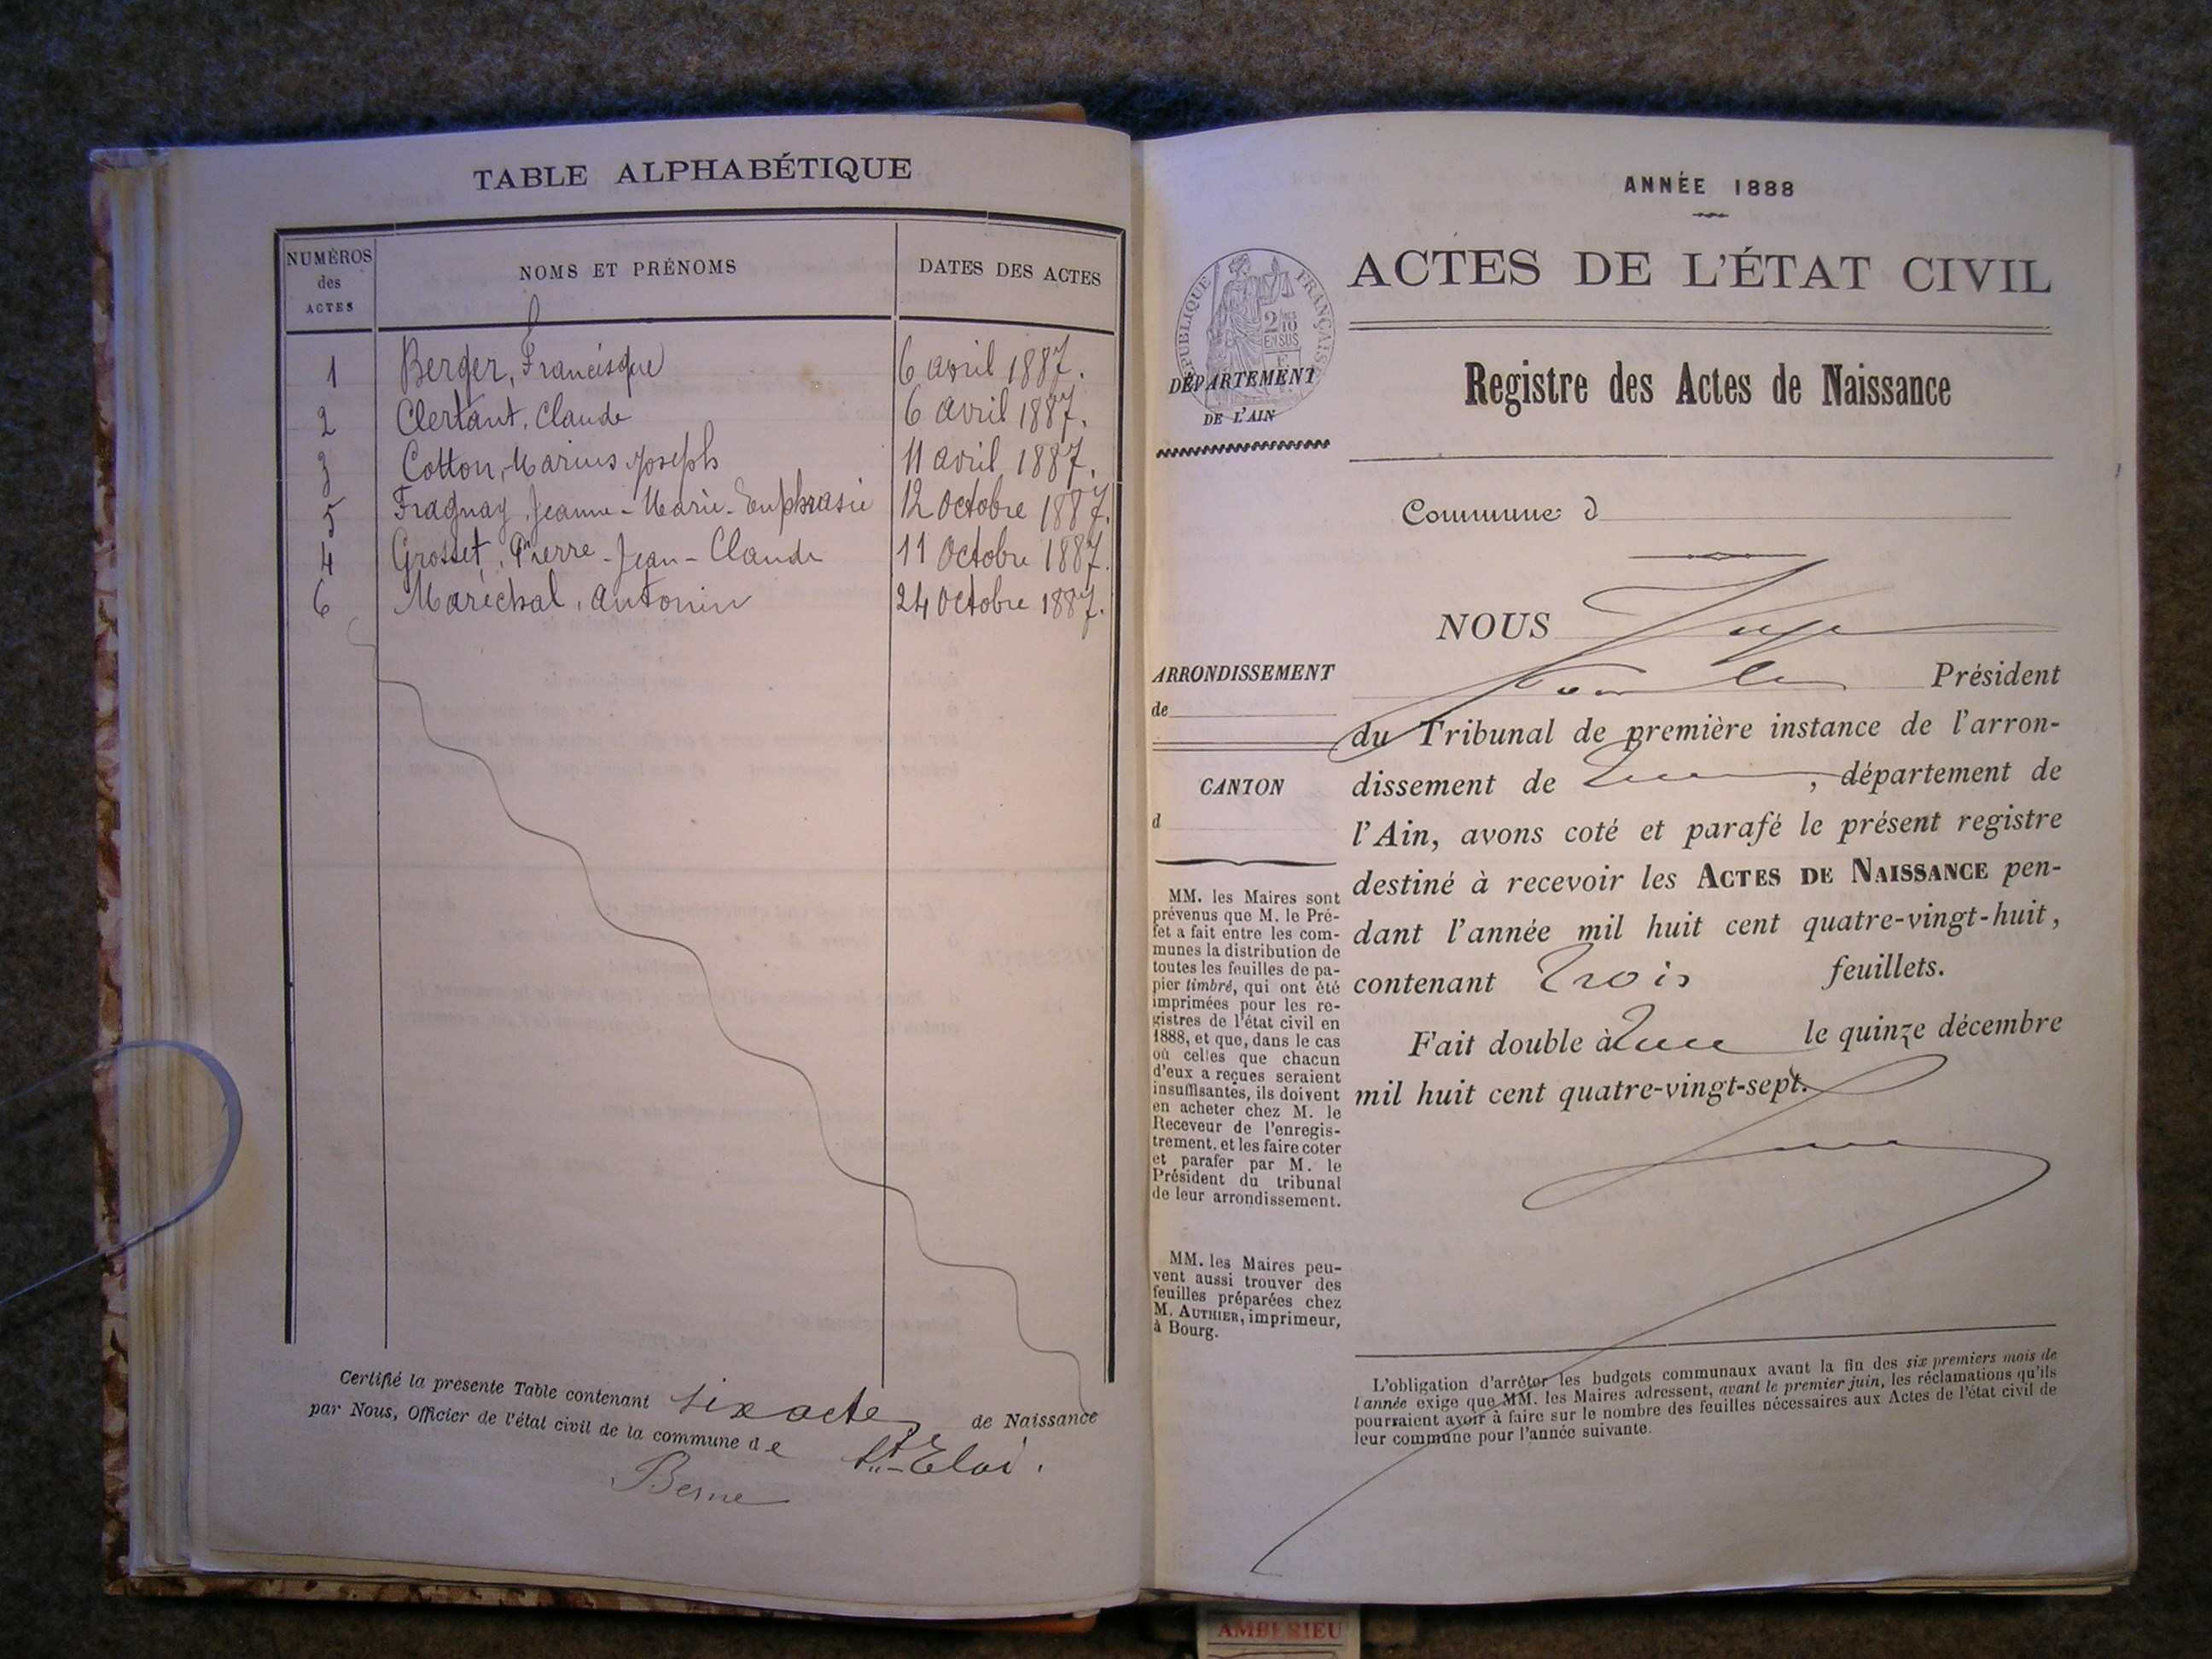 TABLE ALPHABÉTIQUE
NUMÉROS des ACTES NOMS ET PRÉNOMS DATES DES ACTES
1 Berger, Francisque 6 avril 1887.
2 Clertant, Claude 6 avril 1887.
3 Cotton, Marius Joseph 11 avril 1887.
5 Fragnay, Jeanne-Marie-Euphrasie 12 octobre 1887.
4 Grosset, Pierre-Jean-Claude 11 Octobre 1887.
6 Maréchal, Antonin 24 octobre 1887.
Certifié la présente Table contenant six actes de Naissance
par Nous, Officier de l'état civil de la commune de St-Eloi.
Berne
ANNÉE 1888
ACTES DE L'ÉTAT CIVIL
RÉPUBLIQUE FRANÇAISE
2/10 EN SUS
DÉPARTEMENT
DE L'AIN
Registre des Actes de Naissance
Commune d
NOUS Juge
Président
ARRONDISSEMENT
de
du Tribunal de première instance de l'arron-
dissement de , département de
CANTON
d
l'Ain, avons coté et parafé le présent registre
destiné à recevoir les ACTES DE NAISSANCE pen-
dant l'année mil huit cent quatre-vingt-huit,
contenant Trois feuillets.
Fait double à le quinze décembre
mil huit cent quatre-vingt-sept.
MM. les Maires sont
prévenus que M. le Pré-
fet a fait entre les com-
munes la distribution de
toutes les feuilles de pa-
pier timbré, qui ont été
imprimées pour les re-
gistres de l'état civil en
1888, et que, dans le cas
où celles que chacun
d'eux a reçues seraient
insuffisantes, ils doivent
en acheter chez M. le
Receveur de l'enregis-
trement, et les faire coter
et parafer par M. le
Président du tribunal
de leur arrondissement.
MM. les Maires peu-
vent aussi trouver des
feuilles préparées chez
M. AUTHIER, imprimeur,
à Bourg.
L'obligation d'arrêter les budgets communaux avant la fin des six premiers mois de
l'année exige que MM. les Maires adressent, avant le premier juin, les réclamations qu'ils
pourraient avoir à faire sur le nombre des feuilles nécessaires aux Actes de l'état civil de
leur commune pour l'année suivante.
AMBERIEU